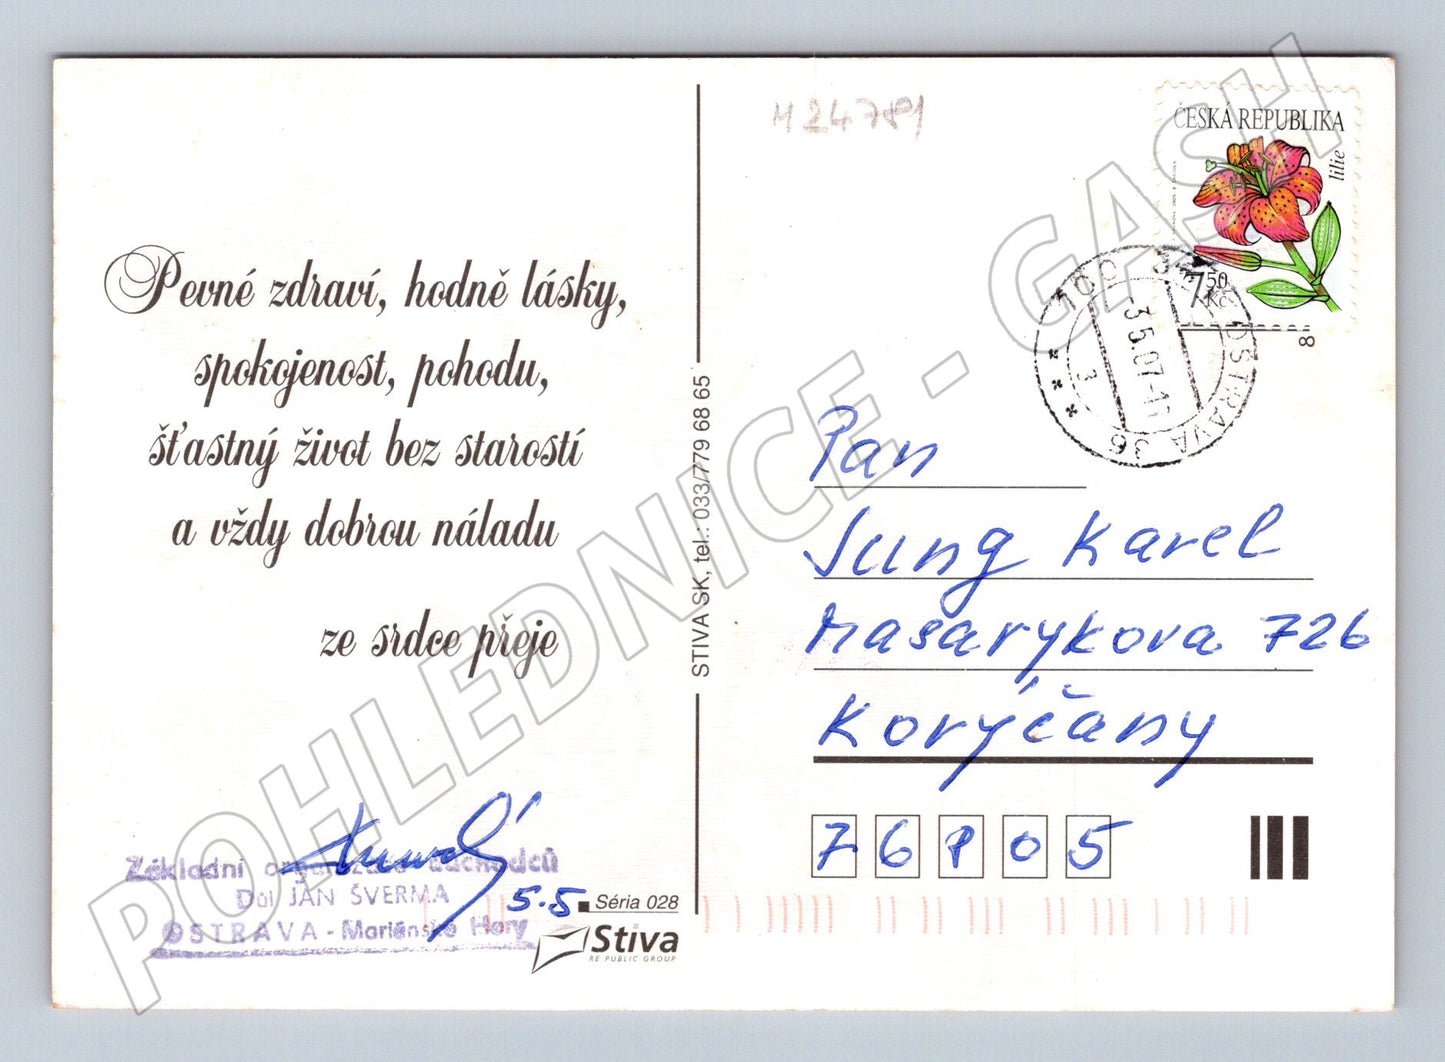 Pevné zdraví, hodně lásky,
spokojenost, pohodu,
šťastný život bez starostí
a vždy dobrou náladu
ze srdce přeje
Základní organizace důchodců
Důl JAN ŠVERMA
OSTRAVA - Mariánské Hory
5.5
Séria 028
Stiva
RE PUBLIC GROUP
STIVA SK, tel.: 033/779 68 65
H 24789
ČESKÁ REPUBLIKA
lilie
7,50
Kč
8
OSTRAVA 36
-3.5.07-
3
Pan
Jung Karel
Masarykova 726
Korýčany
76805
POHLEDNICE - GASH